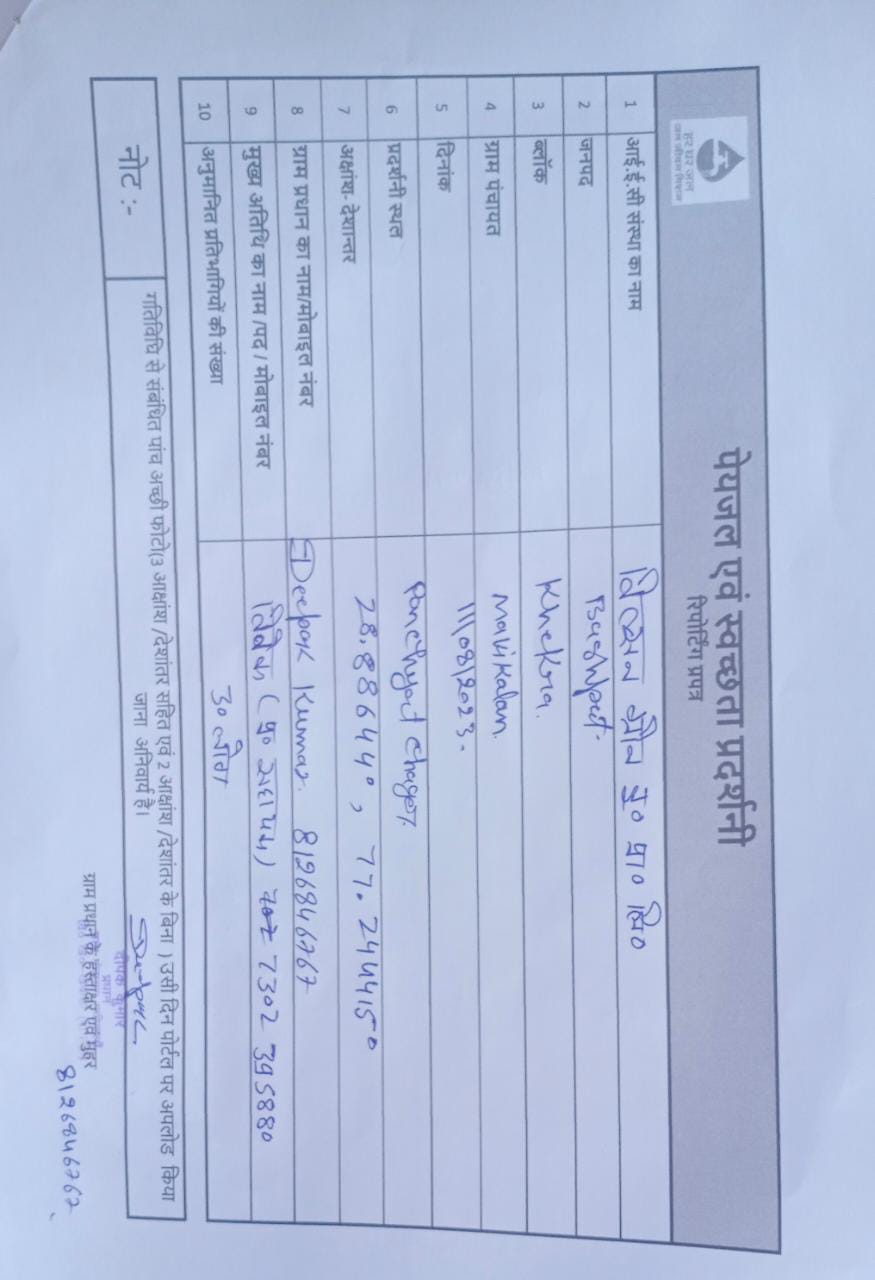 हर घर जल
जल जीवन मिशन
पेयजल एवं स्वच्छता प्रदर्शनी
रिपोर्टिंग प्रपत्र
1 आई.ई.सी संस्था का नाम विल्सन ग्रीन यू० प्रा० लि०
2 जनपद Baghpat
3 ब्लॉक Khekra.
4 ग्राम पंचायत Mavikalan.
5 दिनांक 11/08/2023.
6 प्रदर्शनी स्थल Panchyat Ghar
7 अक्षांश-देशान्तर 28.88644°, 77.244415°
8 ग्राम प्रधान का नाम/मोबाइल नंबर Deepak Kumar 8126846767
9 मुख्य अतिथि का नाम /पद / मोबाइल नंबर विवेक (पं० सहायक) 7302395880
10 अनुमानित प्रतिभागियों की संख्या 30 लोग
नोट :- गतिविधि से संबंधित पांच अच्छी फोटो(3 आक्षांश /देशांतर सहित एवं 2 आक्षांश /देशांतर के बिना ) उसी दिन पोर्टल पर अपलोड किया
जाना अनिवार्य है।
Deepak
दीपक कुमार
प्रधान
ग्राम प्रधान के हस्ताक्षर एवं मुहर
8126846767